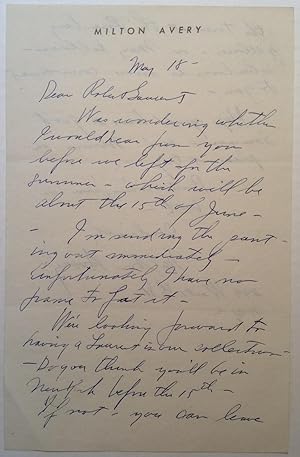 MILTON AVERY
May 18 -
Dear Robert Laurent
Was wondering whether
I would hear from you
before we left for the
summer - which will be
about the 15th of June -
- I'm sending the paint-
ing out immediately -
unfortunately I have no
frame to fit it -
We're looking forward to
having a Laurent in our collection -
- Do you think you'll be in
New York before the 15th -
If not - you can leave